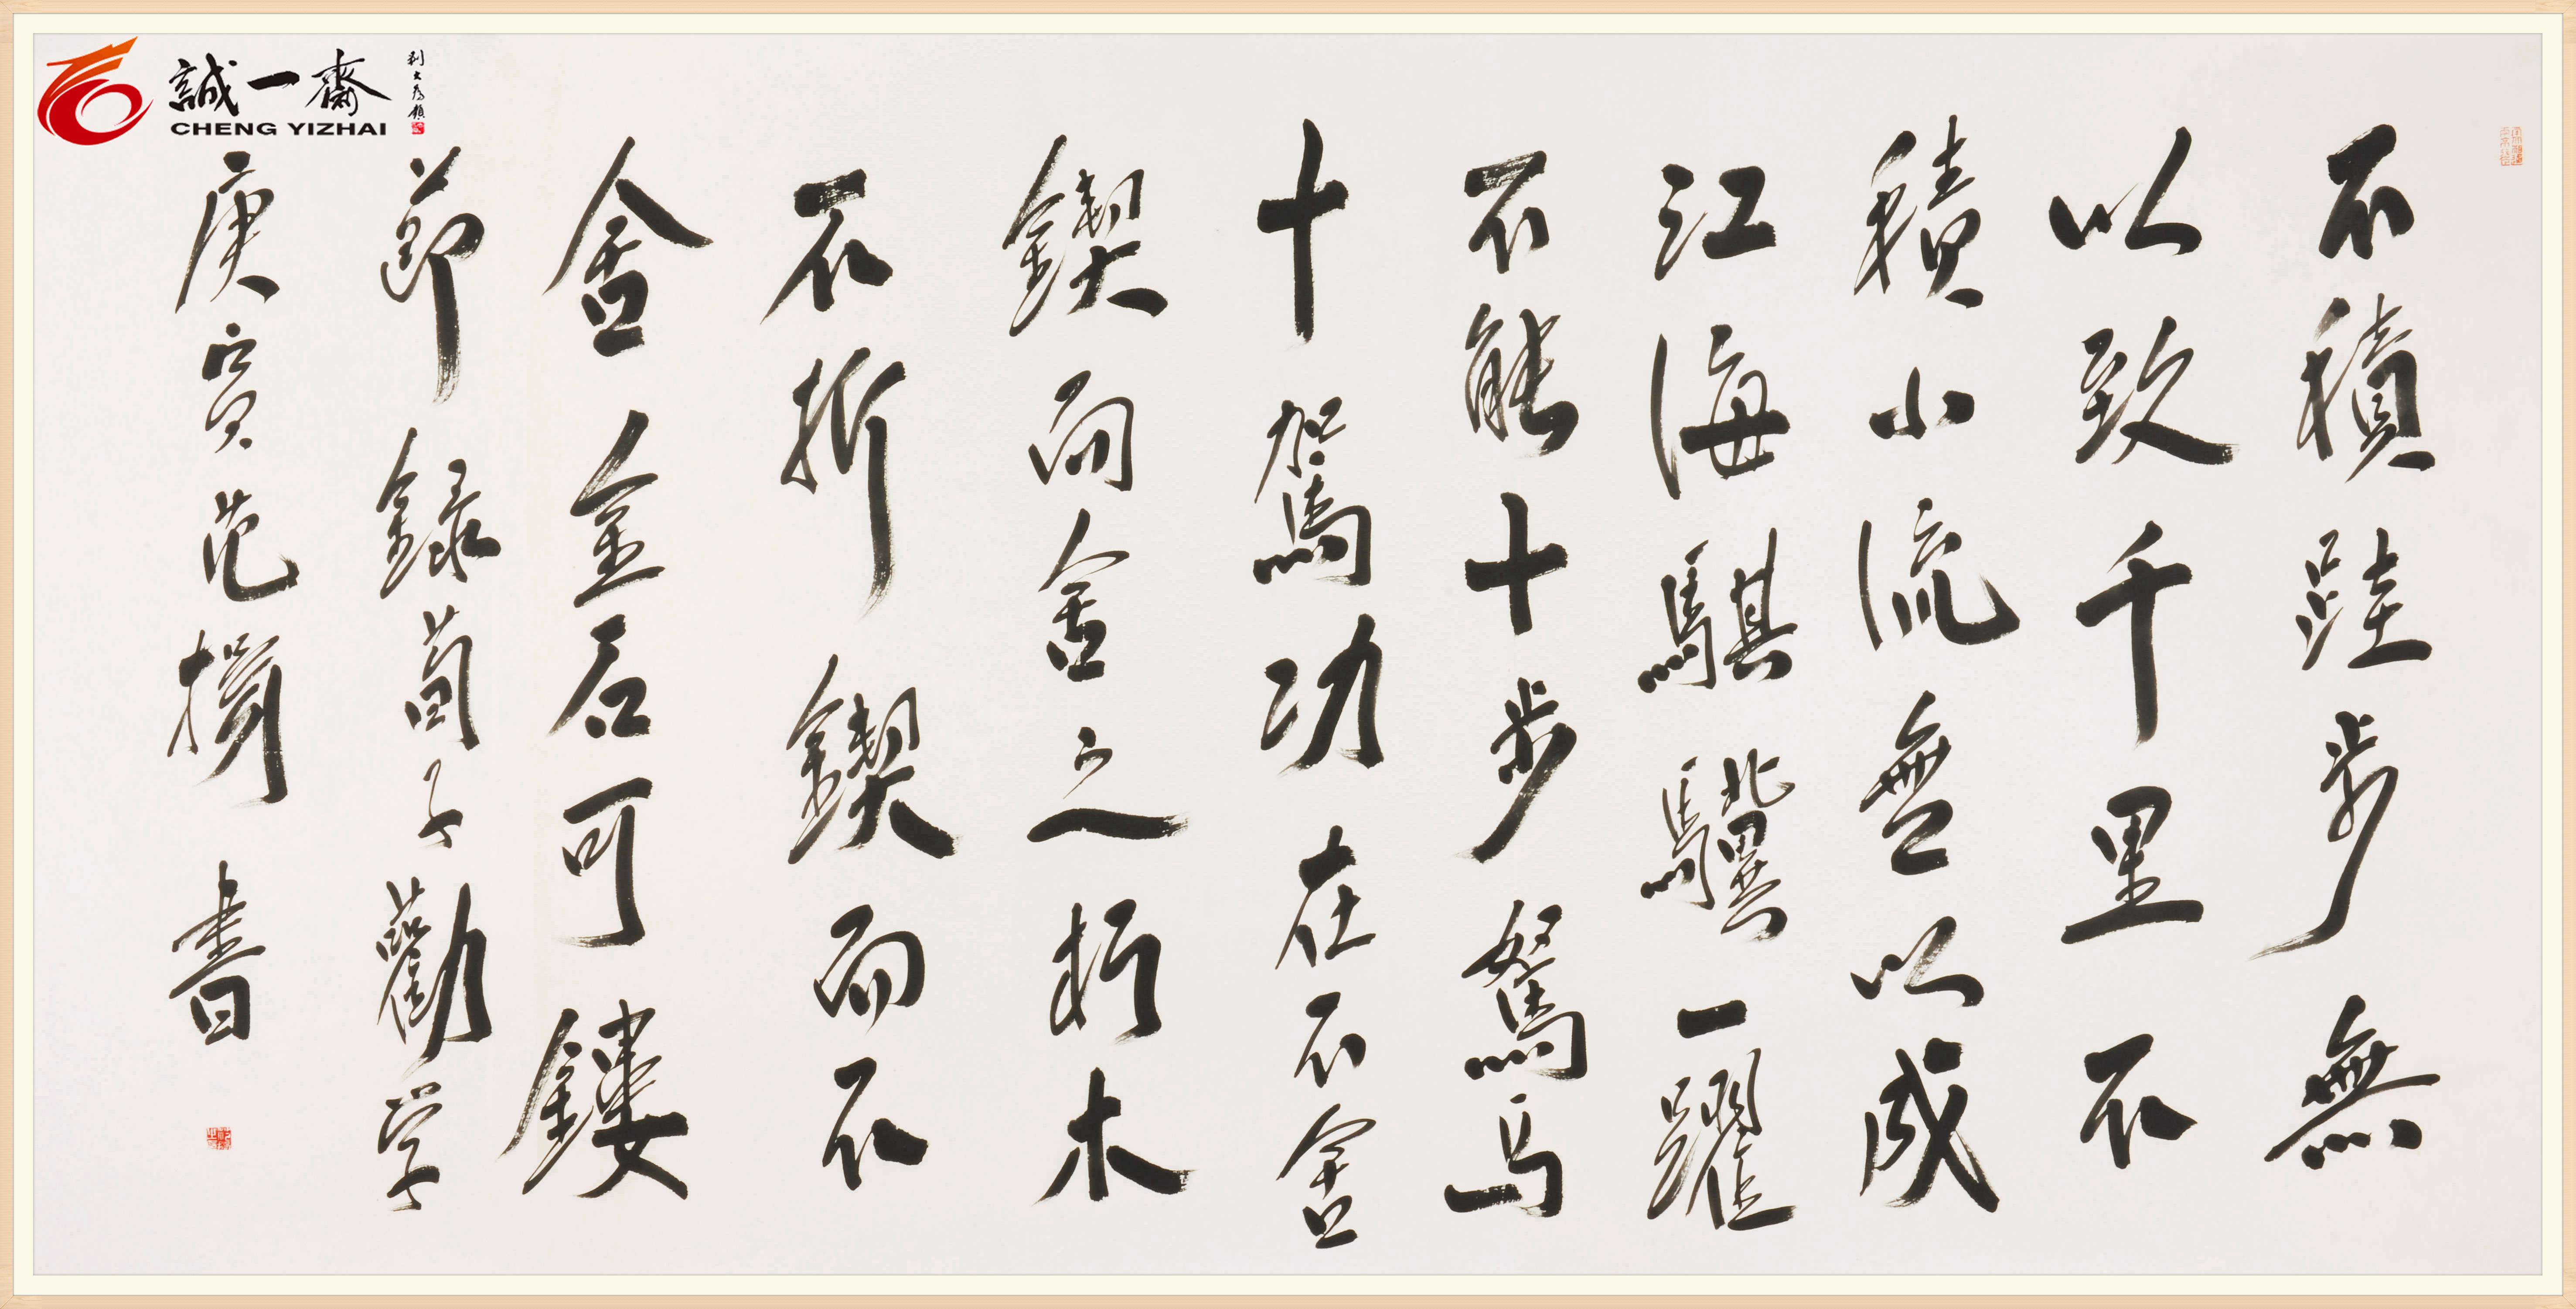 不積跬步無
以致千里不
積小流無以成
江海騏驥一躍
不能十步駑马
十駕功在不舍
鍥而舍之朽木
不折鍥而不
舍金石可鏤
節録荀子勸学
庚寅范書
誠一齋
CHENG YIZHAI
刘大为题